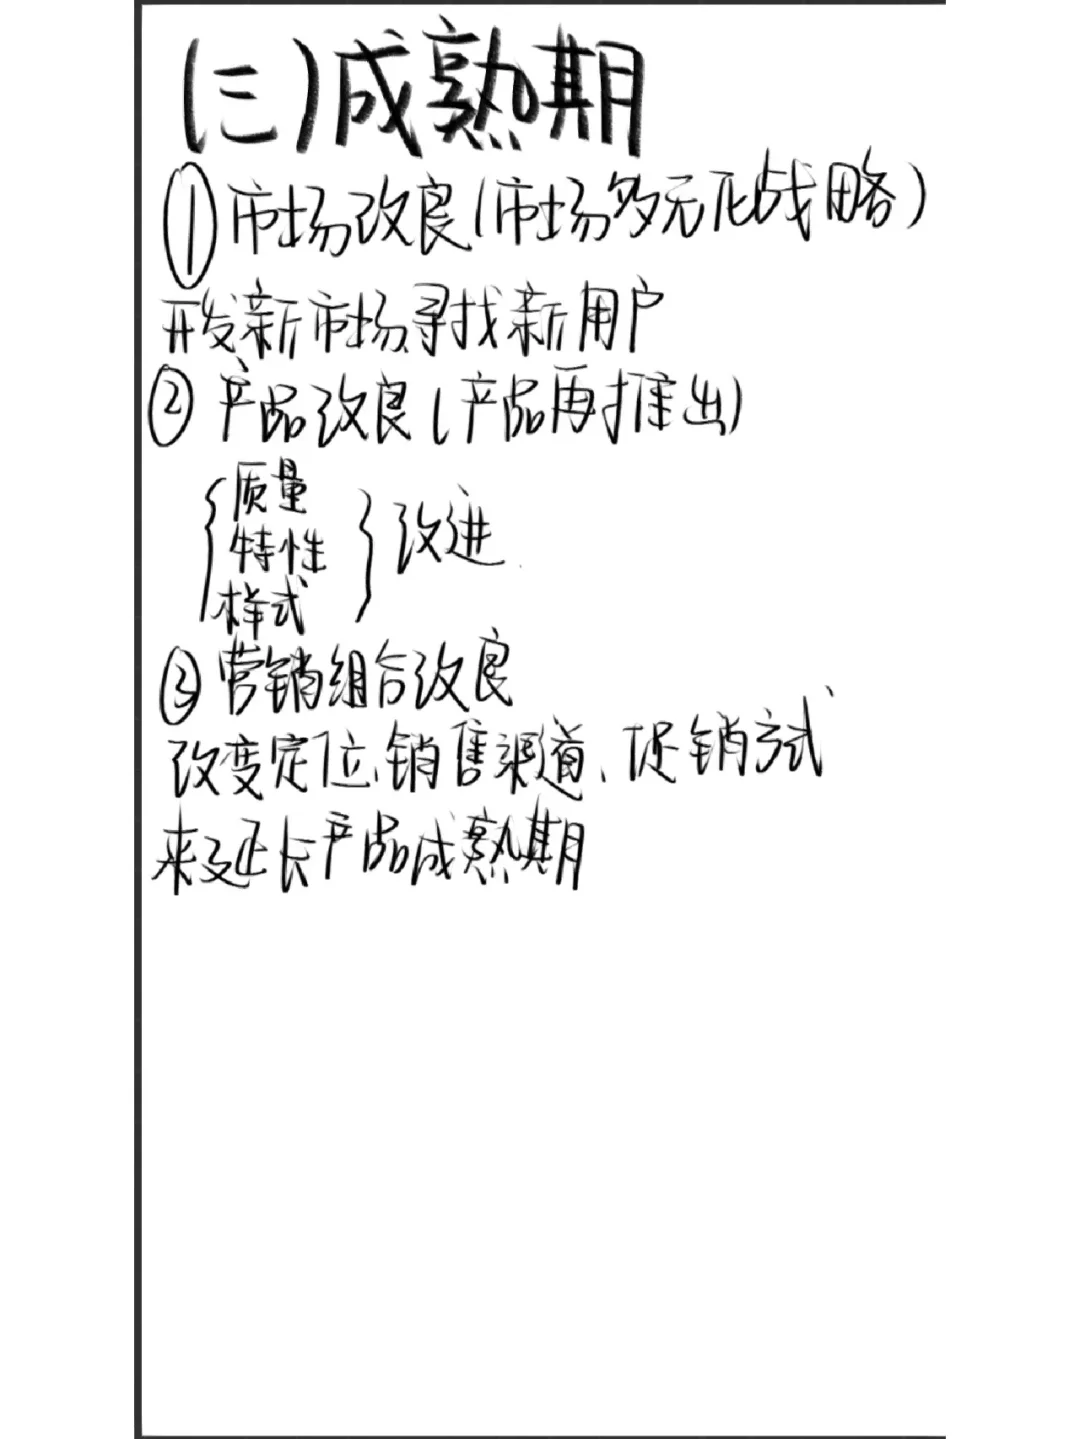 (三)成熟期
①市场改良(市场多元化战略)
开发新市场、寻找新用户
②产品改良(产品再推出)
{质量
特性
样式}改进
③营销组合改良
改变定位、销售渠道、促销方式
来延长产品成熟期